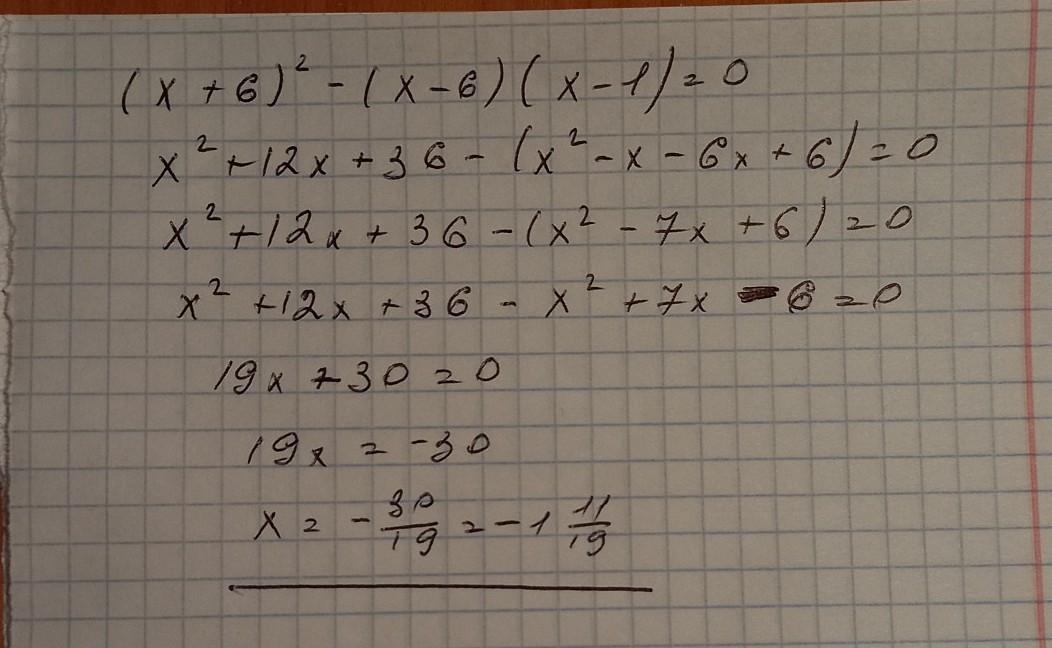 (x+6)² - (x-6)(x-1) = 0
x² + 12x + 36 - (x² - x - 6x + 6) = 0
x² + 12x + 36 - (x² - 7x + 6) = 0
x² + 12x + 36 - x² + 7x - 6 = 0
19x + 30 = 0
19x = -30
x = - 30/19 = -1 11/19